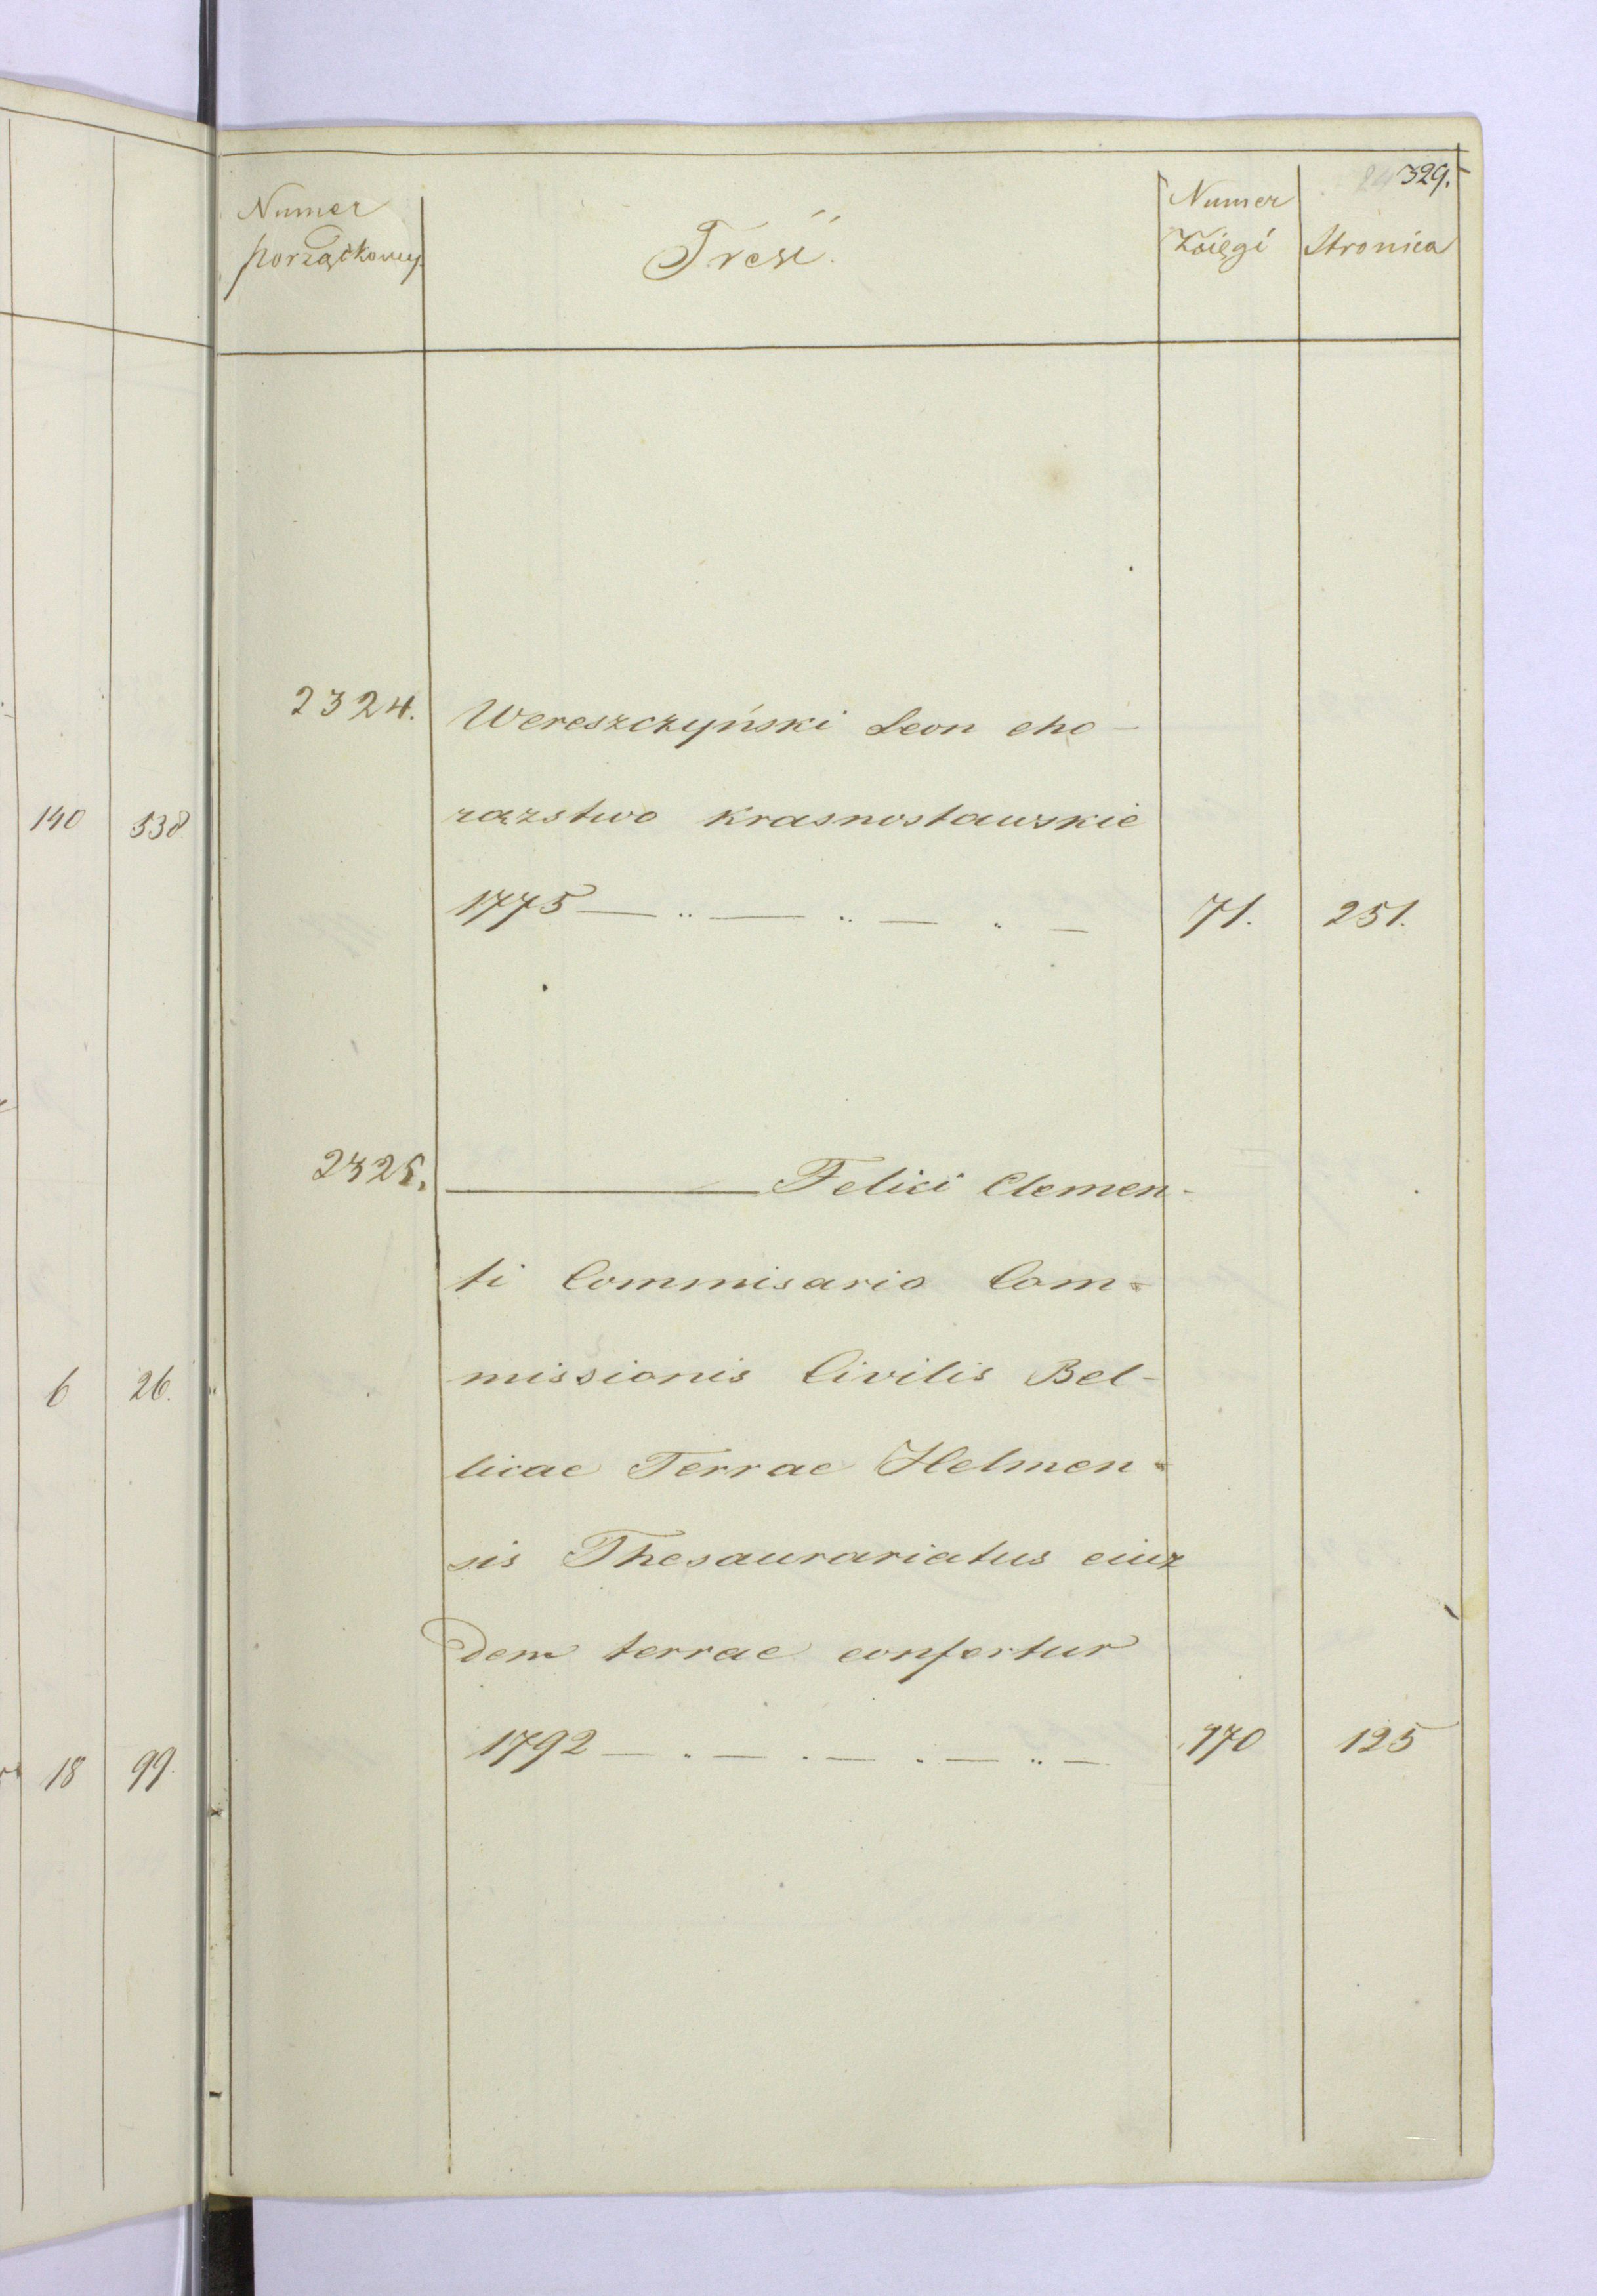 329.
Numer porządkowy
Treść.
Numer Księgi
Stronica
2324. Wereszczyński Leon cho-
rązstwo krasnostawskie
1775 — .. — .. — .. — 71. 251.
2325. ——— Felici Clemen-
ti Commisario Com-
missionis Civilis Bel-
licae Terrae Helmen-
sis Thesaurariatus eius
dem terrae confertur
1792 — . — . — . — .. — 170 125
140 538
6 26.
18 99.